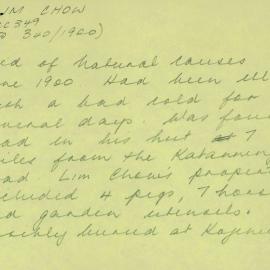 IM CHOW
CC 349
340/1900)
ed of natural causes
ne 1900 Had been ill
th a bad cold for
veral days. Was foun
ad in his hut 7
iles from the Katanning
ad. Lim Chow's proper
cluded 4 pigs, 7 hous
d garden utensils.
ssibly buried at Kojonu